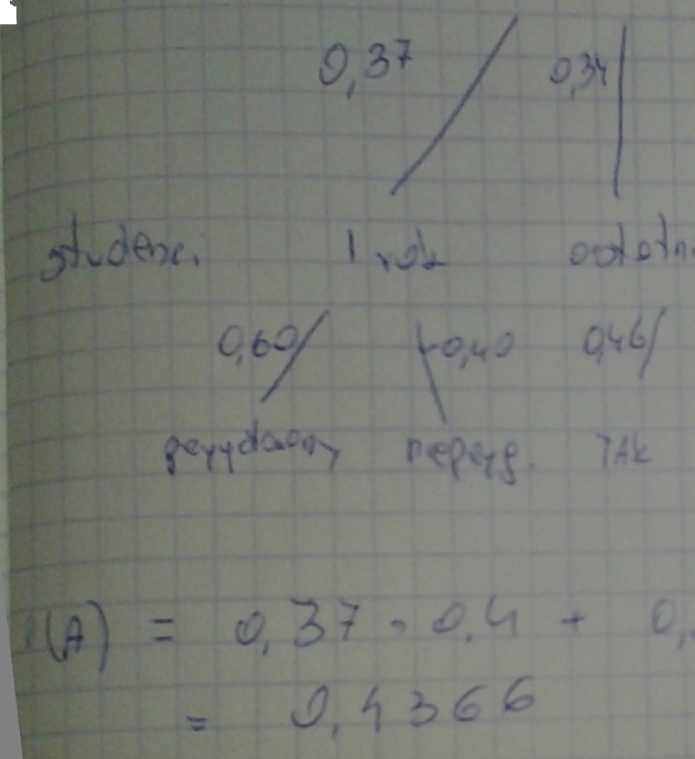 0,37 0,34
studenc. 1 rok ostatn.
0,60 0,40 0,46
przydzielony nieprzyd. TAK
(A) = 0,37 · 0,4 + 0,
= 0,4366